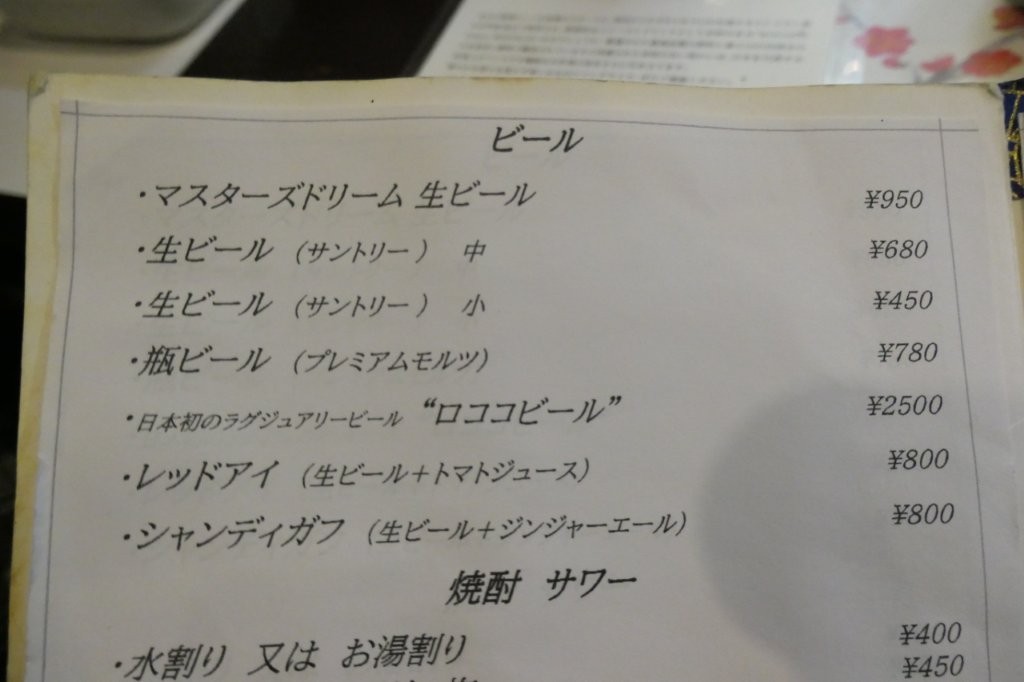 ビール
・マスターズドリーム 生ビール ¥950
・生ビール （サントリー） 中 ¥680
・生ビール （サントリー） 小 ¥450
・瓶ビール （プレミアムモルツ） ¥780
・日本初のラグジュアリービール “ロココビール” ¥2500
・レッドアイ （生ビール＋トマトジュース） ¥800
・シャンディガフ （生ビール＋ジンジャーエール） ¥800
焼酎 サワー
・水割り 又は お湯割り ¥400
¥450